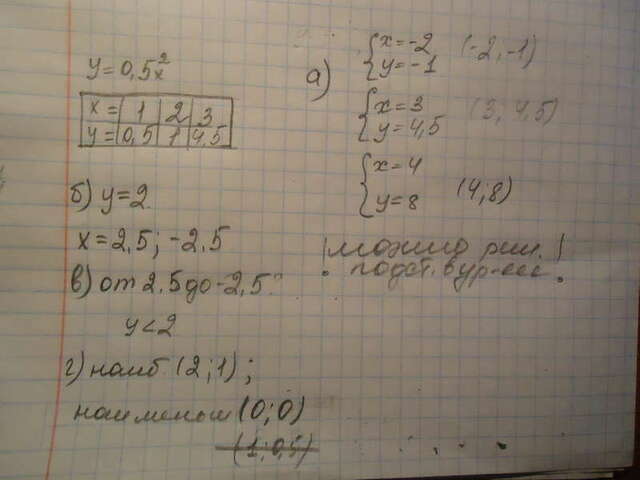 y=0,5x²
x= 1 2 3
y= 0,5 1 4,5
б) y=2
x=2,5; -2,5
в) от 2,5 до -2,5
y<2
г) наиб. (2;1);
наименьш (0;0)
(1;0,5)
а)
{x=-2 (-2;-1)
y=-1
{x=3 (3; 4,5)
y=4,5
{x=4 (4;8)
y=8
! можно реш. !
подст. в ур-